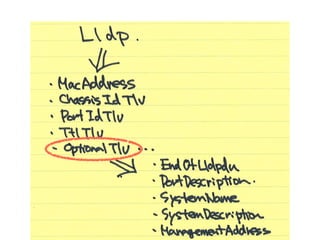 Lldp.
· MacAddress
· ChassisIdTlv
· PortIdTlv
· TtlTlv
· OptionalTlv ...
· EndOfLldpdu
· PortDescription.
· SystemName
· SystemDescription
· ManagementAddress